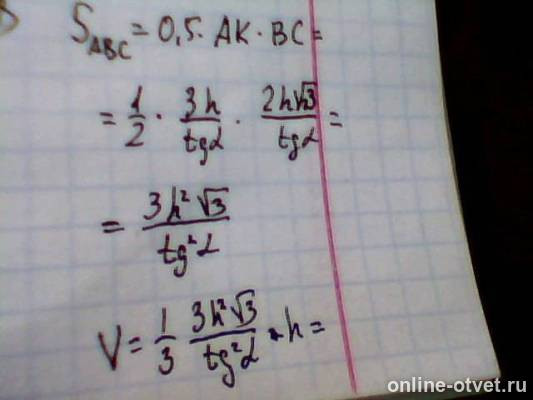 S_ABC = 0,5 · AK · BC =
= 1/2 · 3h/tgα · 2h√3/tgα =
= 3h²√3/tg²α
V = 1/3 3h²√3/tg²α · h =
online-otvet.ru